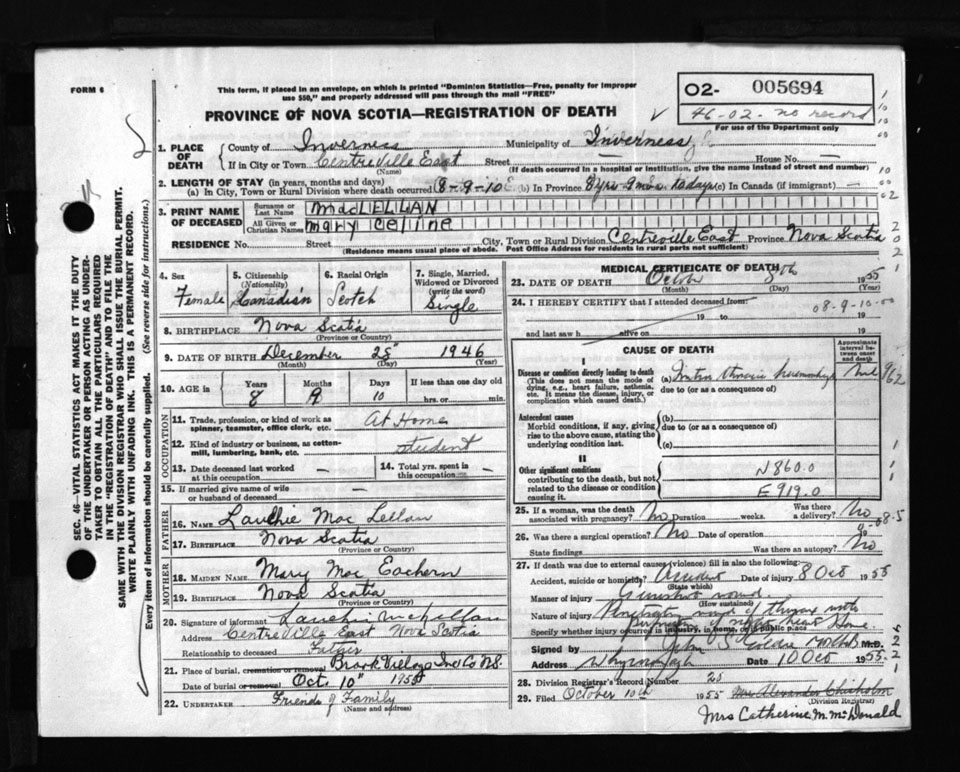 FORM 6
This form, if placed in an envelope, on which is printed "Dominion Statistics—Free, penalty for improper
use $50," and properly addressed will pass through the mail "FREE"
O2- 005694
46-02- no record
For use of the Department only
PROVINCE OF NOVA SCOTIA—REGISTRATION OF DEATH
1. PLACE OF DEATH
County of Inverness Municipality of Inverness
If in City or Town Centreville East Street — House No. —
(Name) (If death occurred in a hospital or institution, give the name instead of street and number)
2. LENGTH OF STAY (in years, months and days)
(a) In City, Town or Rural Division where death occurred 8-9-10 (b) In Province 8 yrs 9 mos. 10 days (c) In Canada (if immigrant) —
3. PRINT NAME OF DECEASED
Surname or Last Name MacLELLAN
All Given or Christian Names Mary Celine
RESIDENCE No. Street City, Town or Rural Division Centreville East Province Nova Scotia
(Residence means usual place of abode. Post Office Address for residents in rural parts not sufficient)
4. Sex Female
5. Citizenship (Nationality) Canadian
6. Racial Origin Scotch
7. Single, Married, Widowed or Divorced (write the word) Single
8. BIRTHPLACE Nova Scotia
(Province or Country)
9. DATE OF BIRTH December 28" 1946
(Month) (Day) (Year)
10. AGE in Years 8 Months 9 Days 10 If less than one day old hrs. or min.
OCCUPATION
11. Trade, profession, or kind of work as spinner, teamster, office clerk, etc. At Home
12. Kind of industry or business, as cotton-mill, lumbering, bank, etc. student
13. Date deceased last worked at this occupation —
14. Total yrs. spent in this occupation —
15. If married give name of wife or husband of deceased —
FATHER
16. NAME Lauchie Mac Lellan
17. BIRTHPLACE Nova Scotia
(Province or Country)
MOTHER
18. MAIDEN NAME Mary Mac Eachern
19. BIRTHPLACE Nova Scotia
(Province or Country)
20. Signature of informant Lauchie McLellan
Address Centreville East Nova Scotia
Relationship to deceased Father
21. Place of burial, cremation or removal Brook Village Inv Co N.S.
Date of burial or removal Oct. 10" 1955
22. UNDERTAKER Friends of Family
(Name and address)
MEDICAL CERTIFICATE OF DEATH
23. DATE OF DEATH October 8th 1955
(Month) (Day)
24. I HEREBY CERTIFY that I attended deceased from:
08-9-10-00
19 to 19
and last saw h alive on 19
CAUSE OF DEATH
Approximate interval between onset and death
I
Disease or condition directly leading to death
(This does not mean the mode of dying, e.g., heart failure, asthenia, etc. It means the disease, injury, or complication which caused death.)
(a) Intra thoracic haemorrhage
due to (or as a consequence of)
962
Antecedent causes
Morbid conditions, if any, giving rise to the above cause, stating the underlying condition last.
(b)
due to (or as a consequence of)
(c)
II
Other significant conditions
contributing to the death, but not related to the disease or condition causing it.
N860.0
E919.0
25. If a woman, was the death associated with pregnancy? No Duration weeks. Was there a delivery? No
08-5
26. Was there a surgical operation? No Date of operation 19
State findings Was there an autopsy? No
27. If death was due to external causes (violence) fill in also the following:
Accident, suicide or homicide? Accident Date of injury 8 Oct 1955
(State which)
Manner of injury Gunshot wound
(How sustained)
Nature of injury Penetrating wound of thorax with
Specify whether injury occurred in industry, in home, or in public place Home.
Signed by John S M.D.
Address Whycocomagh Date 10 Oct 1955
28. Division Registrar's Record Number 20
29. Filed October 10th 1955 Mrs Alexander Chisholm
(Division Registrar)
Mrs Catherine M. McDonald
SEC. 46—VITAL STATISTICS ACT MAKES IT THE DUTY
OF THE UNDERTAKER OR PERSON ACTING AS UNDER-
TAKER TO OBTAIN ALL THE PARTICULARS REQUIRED
IN THE "REGISTRATION OF DEATH" AND TO FILE IT
WITH THE DIVISION REGISTRAR WHO SHALL ISSUE THE BURIAL PERMIT.
WRITE PLAINLY WITH UNFADING INK. THIS IS A PERMANENT RECORD.
Every item of information should be carefully supplied. (See reverse side for instructions.)